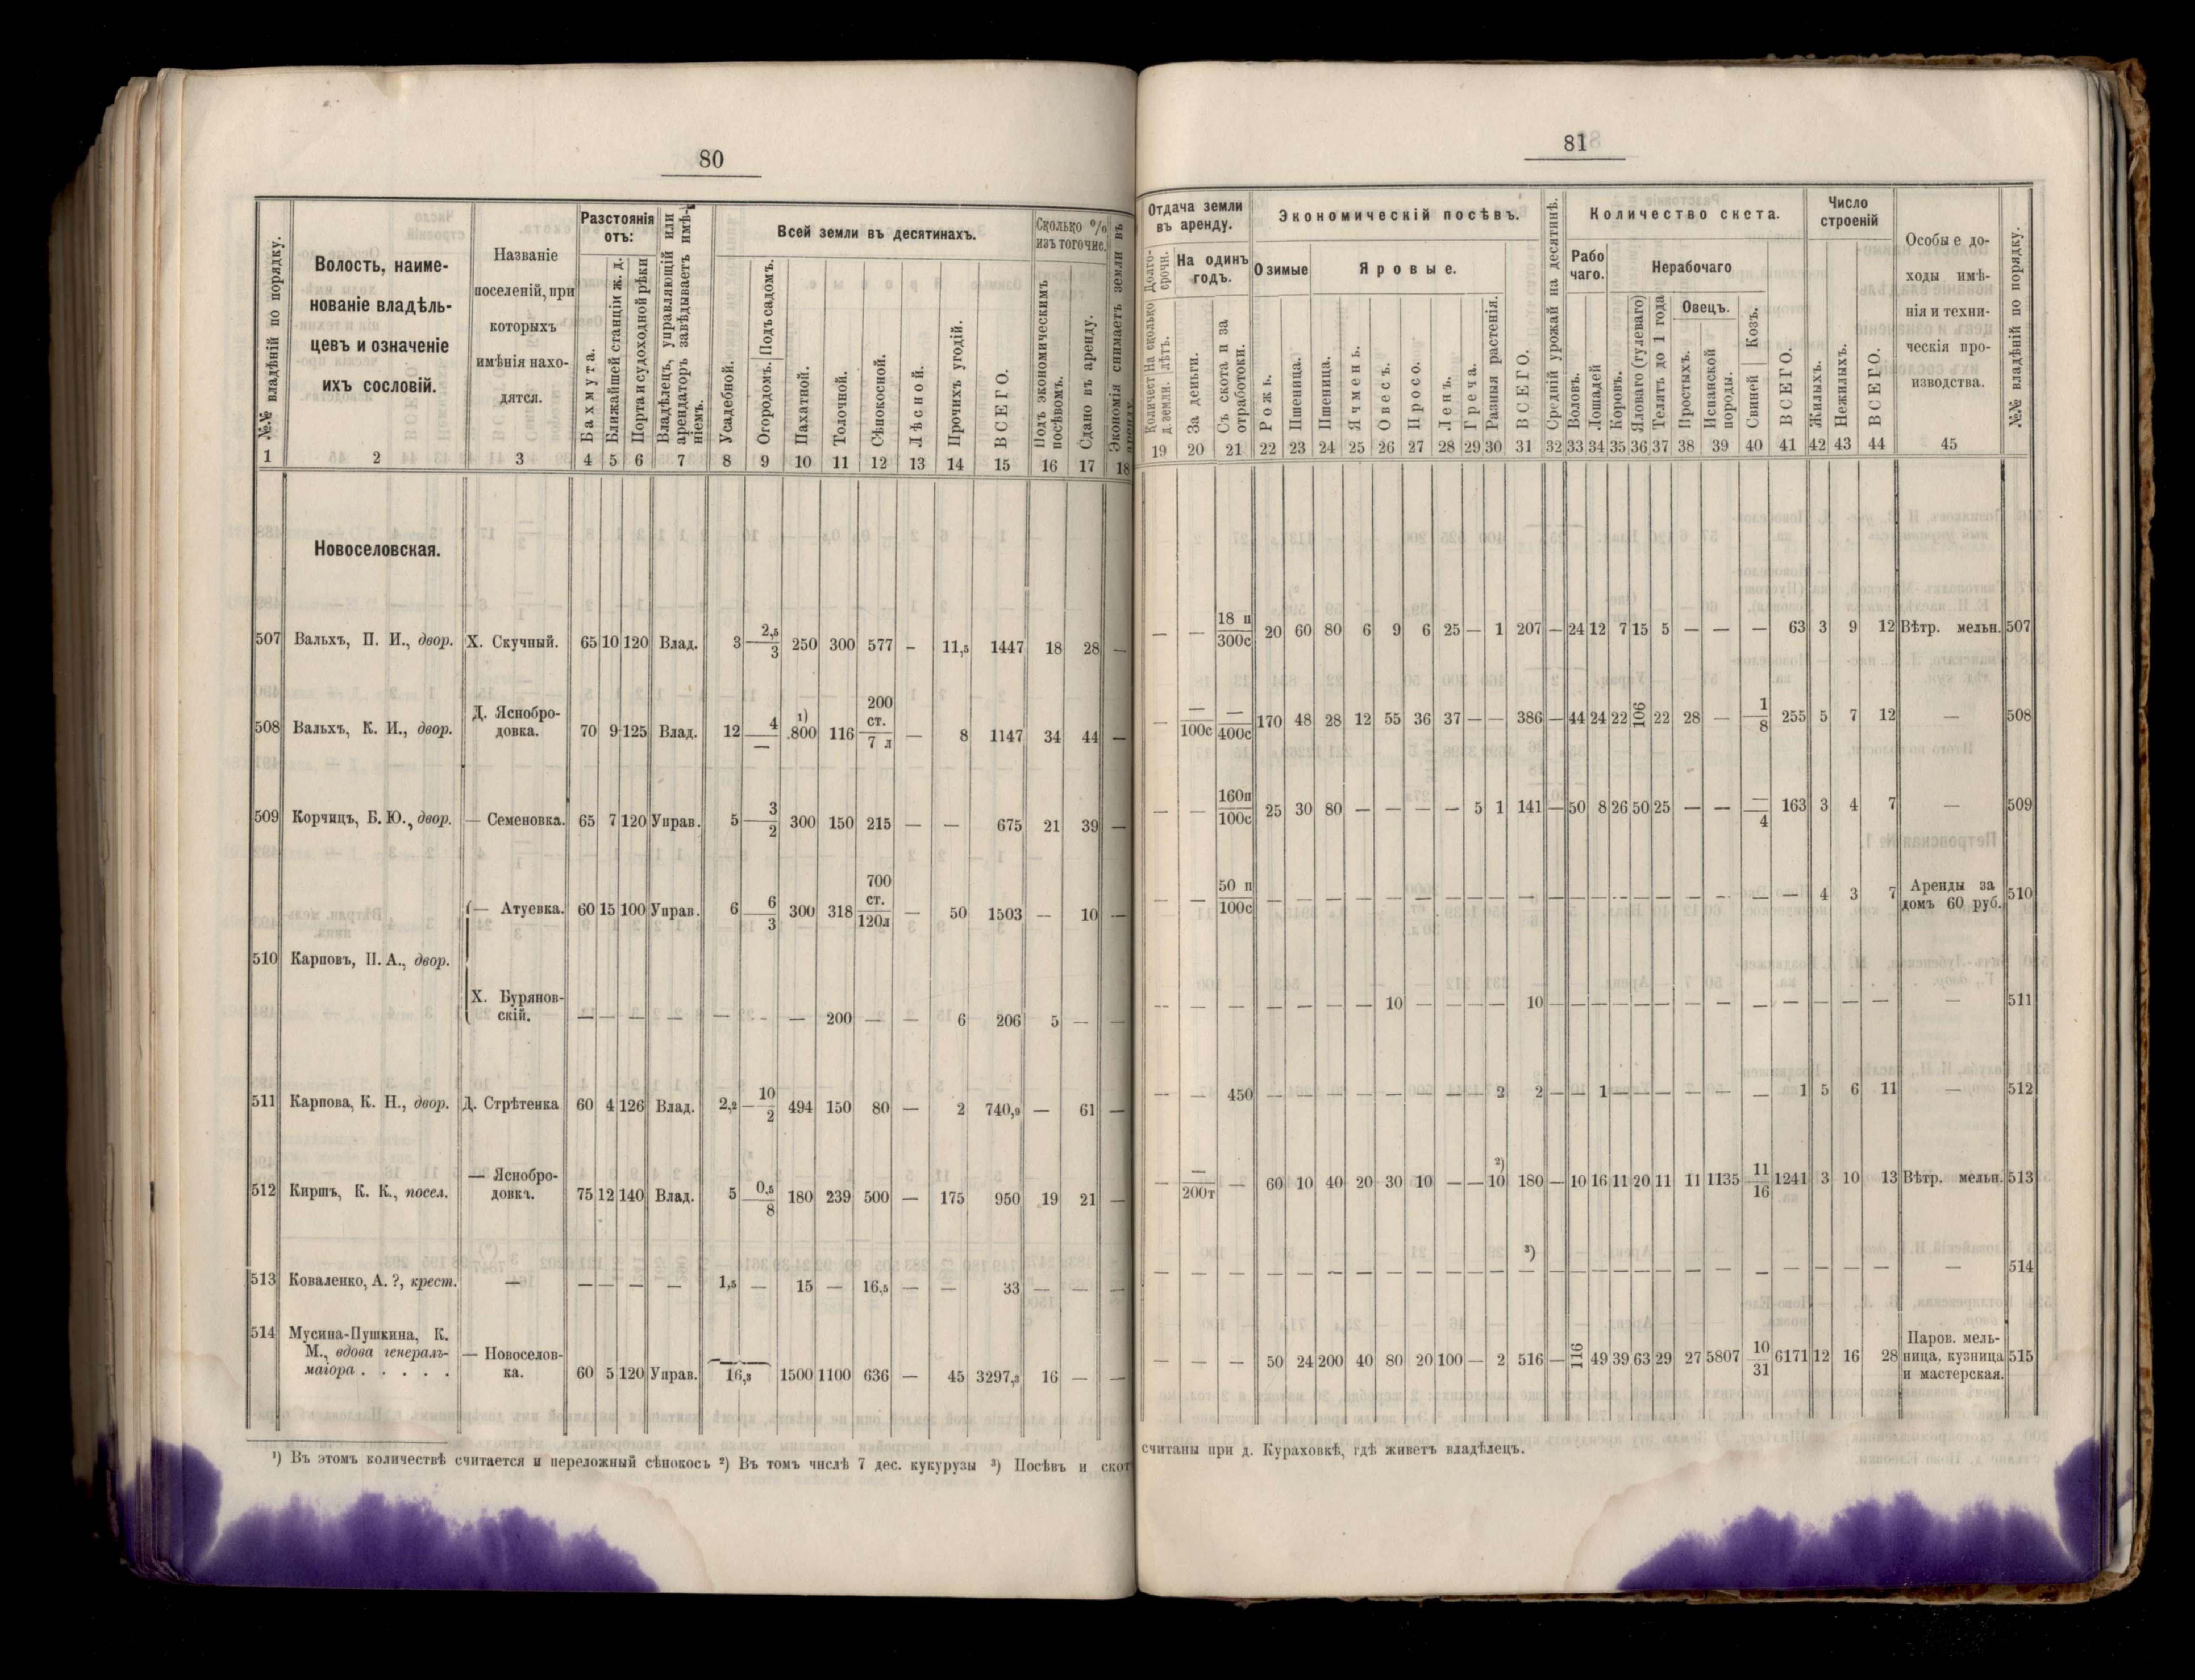 80
№№ владѣній по порядку.
Волость, наиме-
нованіе владѣль-
цевъ и означеніе
ихъ сословій.
Названіе
поселеній, при
которыхъ
имѣнія нахо-
дятся.
Разстоянія
отъ:
Бахмута.
Ближайшей станціи ж. д.
Порта и судоходной рѣки
Владѣлецъ, управляющій или
арендаторъ завѣдываетъ имѣ-
ніемъ.
Всей земли въ десятинахъ.
Усадебной.
Огородомъ. Подъ садомъ.
Пахатной.
Толочной.
Сѣнокосной.
Лѣсной.
Прочихъ угодій.
ВСЕГО.
Сколько %
изъ того чис.
Подъ экономическимъ
посѣвомъ.
Сдано въ аренду.
Экономія снимаетъ земли въ
1 2 3 4 5 6 7 8 9 10 11 12 13 14 15 16 17 18
Новоселовская.
507 Вальхъ, П. И., двор. Х. Скучный. 65 10 120 Влад. 3 2,5/3 250 300 577 – 11,5 1447 18 28 —
508 Вальхъ, К. И., двор. Д. Яснобро-
довка. 70 9 125 Влад. 12 4/— ¹) 800 116 200 ст./7 л — 8 1147 34 44 —
509 Корчицъ, Б. Ю., двор. — Семеновка. 65 7 120 Управ. 5 3/2 300 150 215 — — 675 21 39 —
— Атуевка. 60 15 100 Управ. 6 6/3 300 318 700 ст./120л — 50 1503 — 10 —
510 Карповъ, П. А., двор.
Х. Бурянов-
скій. — — — — — - - — 200 — — 6 206 5 — —
511 Карпова, К. Н., двор. Д. Стрѣтенка 60 4 126 Влад. 2,2 10/2 494 150 80 — 2 740,9 — 61 —
512 Киршъ, К. К., посел. — Яснобро-
довка. 75 12 140 Влад. 5 0,5/8 180 239 500 — 175 950 19 21 —
513 Коваленко, А. ?, крест. — — — — — 1,5 — 15 — 16,5 — — 33 — — —
514 Мусина-Пушкина, К.
М., вдова генералъ-
маіора . . . . . — Новоселов-
ка. 60 5 120 Управ. 16,3 1500 1100 636 — 45 3297,3 16 — —
¹) Въ этомъ количествѣ считается и переложный сѣнокосъ ²) Въ томъ числѣ 7 дес. кукурузы ³) Посѣвъ и скот
81
Отдача земли
въ аренду.
Долго-
срочн.
Количест На сколько
д. земли. лѣтъ.
На одинъ
годъ.
За деньги.
Съ скота и за
отработки.
Экономическій посѣвъ.
Озимые
Рожь.
Пшеница.
Яровые.
Пшеница.
Ячмень.
Овесъ.
Просо.
Ленъ.
Греча.
Разныя растенія.
ВСЕГО.
Средній урожай на десятинѣ.
Количество скота.
Рабо
чаго.
Воловъ.
Лошадей
Нерабочаго
Коровъ.
Яловаго (гулеваго)
Телятъ до 1 года
Овецъ.
Простыхъ.
Испанской
породы.
Свиней Козъ.
ВСЕГО.
Число
строеній
Жилыхъ.
Нежилыхъ.
ВСЕГО.
Особые до-
ходы имѣ-
нія и техни-
ческія про-
изводства.
№№ владѣній по порядку.
19 20 21 22 23 24 25 26 27 28 29 30 31 32 33 34 35 36 37 38 39 40 41 42 43 44 45
— — 18 п/300с 20 60 80 6 9 6 25 — 1 207 — 24 12 7 15 5 — — — 63 3 9 12 Вѣтр. мельн. 507
— —/100с —/400с 170 48 28 12 55 36 37 — — 386 — 44 24 22 106 22 28 — 1/8 255 5 7 12 — 508
— — 160п/100с 25 30 80 — — — — 5 1 141 — 50 8 26 50 25 — — —/4 163 3 4 7 — 509
— — 50 п/100с — — — — — — — — — — — — — — — — — — — — 4 3 7 Аренды за
домъ 60 руб. 510
— — — — — — — 10 — — — — 10 — — — — — — — — — — — — — — 511
— — 450 — — — — — — — — 2 2 — — 1 — — — — — — 1 5 6 11 — 512
— —/200т — 60 10 40 20 30 10 — — ²) 10 180 — 10 16 11 20 11 11 1135 11/16 1241 3 10 13 Вѣтр. мельн. 513
— — — — — — — — — — — — ³) — — — — — — — — — — — — — — — 514
— — — 50 24 200 40 80 20 100 — 2 516 — 116 49 39 63 29 27 5807 10/31 6171 12 16 28 Паров. мель-
ница, кузница
и мастерская. 515
считаны при д. Кураховкѣ, гдѣ живетъ владѣлецъ.